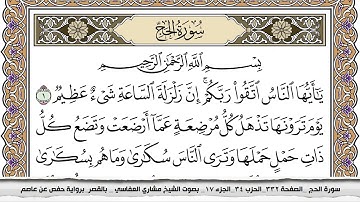 سُورَةُ الْحَجِّ
بِسْمِ اللَّهِ الرَّحْمَٰنِ الرَّحِيمِ
يَٰٓأَيُّهَا ٱلنَّاسُ ٱتَّقُوا۟ رَبَّكُمْ ۚ إِنَّ زَلْزَلَةَ ٱلسَّاعَةِ شَىْءٌ عَظِيمٌ ١
يَوْمَ تَرَوْنَهَا تَذْهَلُ كُلُّ مُرْضِعَةٍ عَمَّآ أَرْضَعَتْ وَتَضَعُ كُلُّ
ذَاتِ حَمْلٍ حَمْلَهَا وَتَرَى ٱلنَّاسَ سُكَٰرَىٰ وَمَا هُم بِسُكَٰرَىٰ
سورة الحج _ الصفحة ٣٣٢ _ الحزب ٣٤ _ الجزء ١٧ _ بصوت الشيخ مشاري العفاسي _ بالقصر برواية حفص عن عاصم